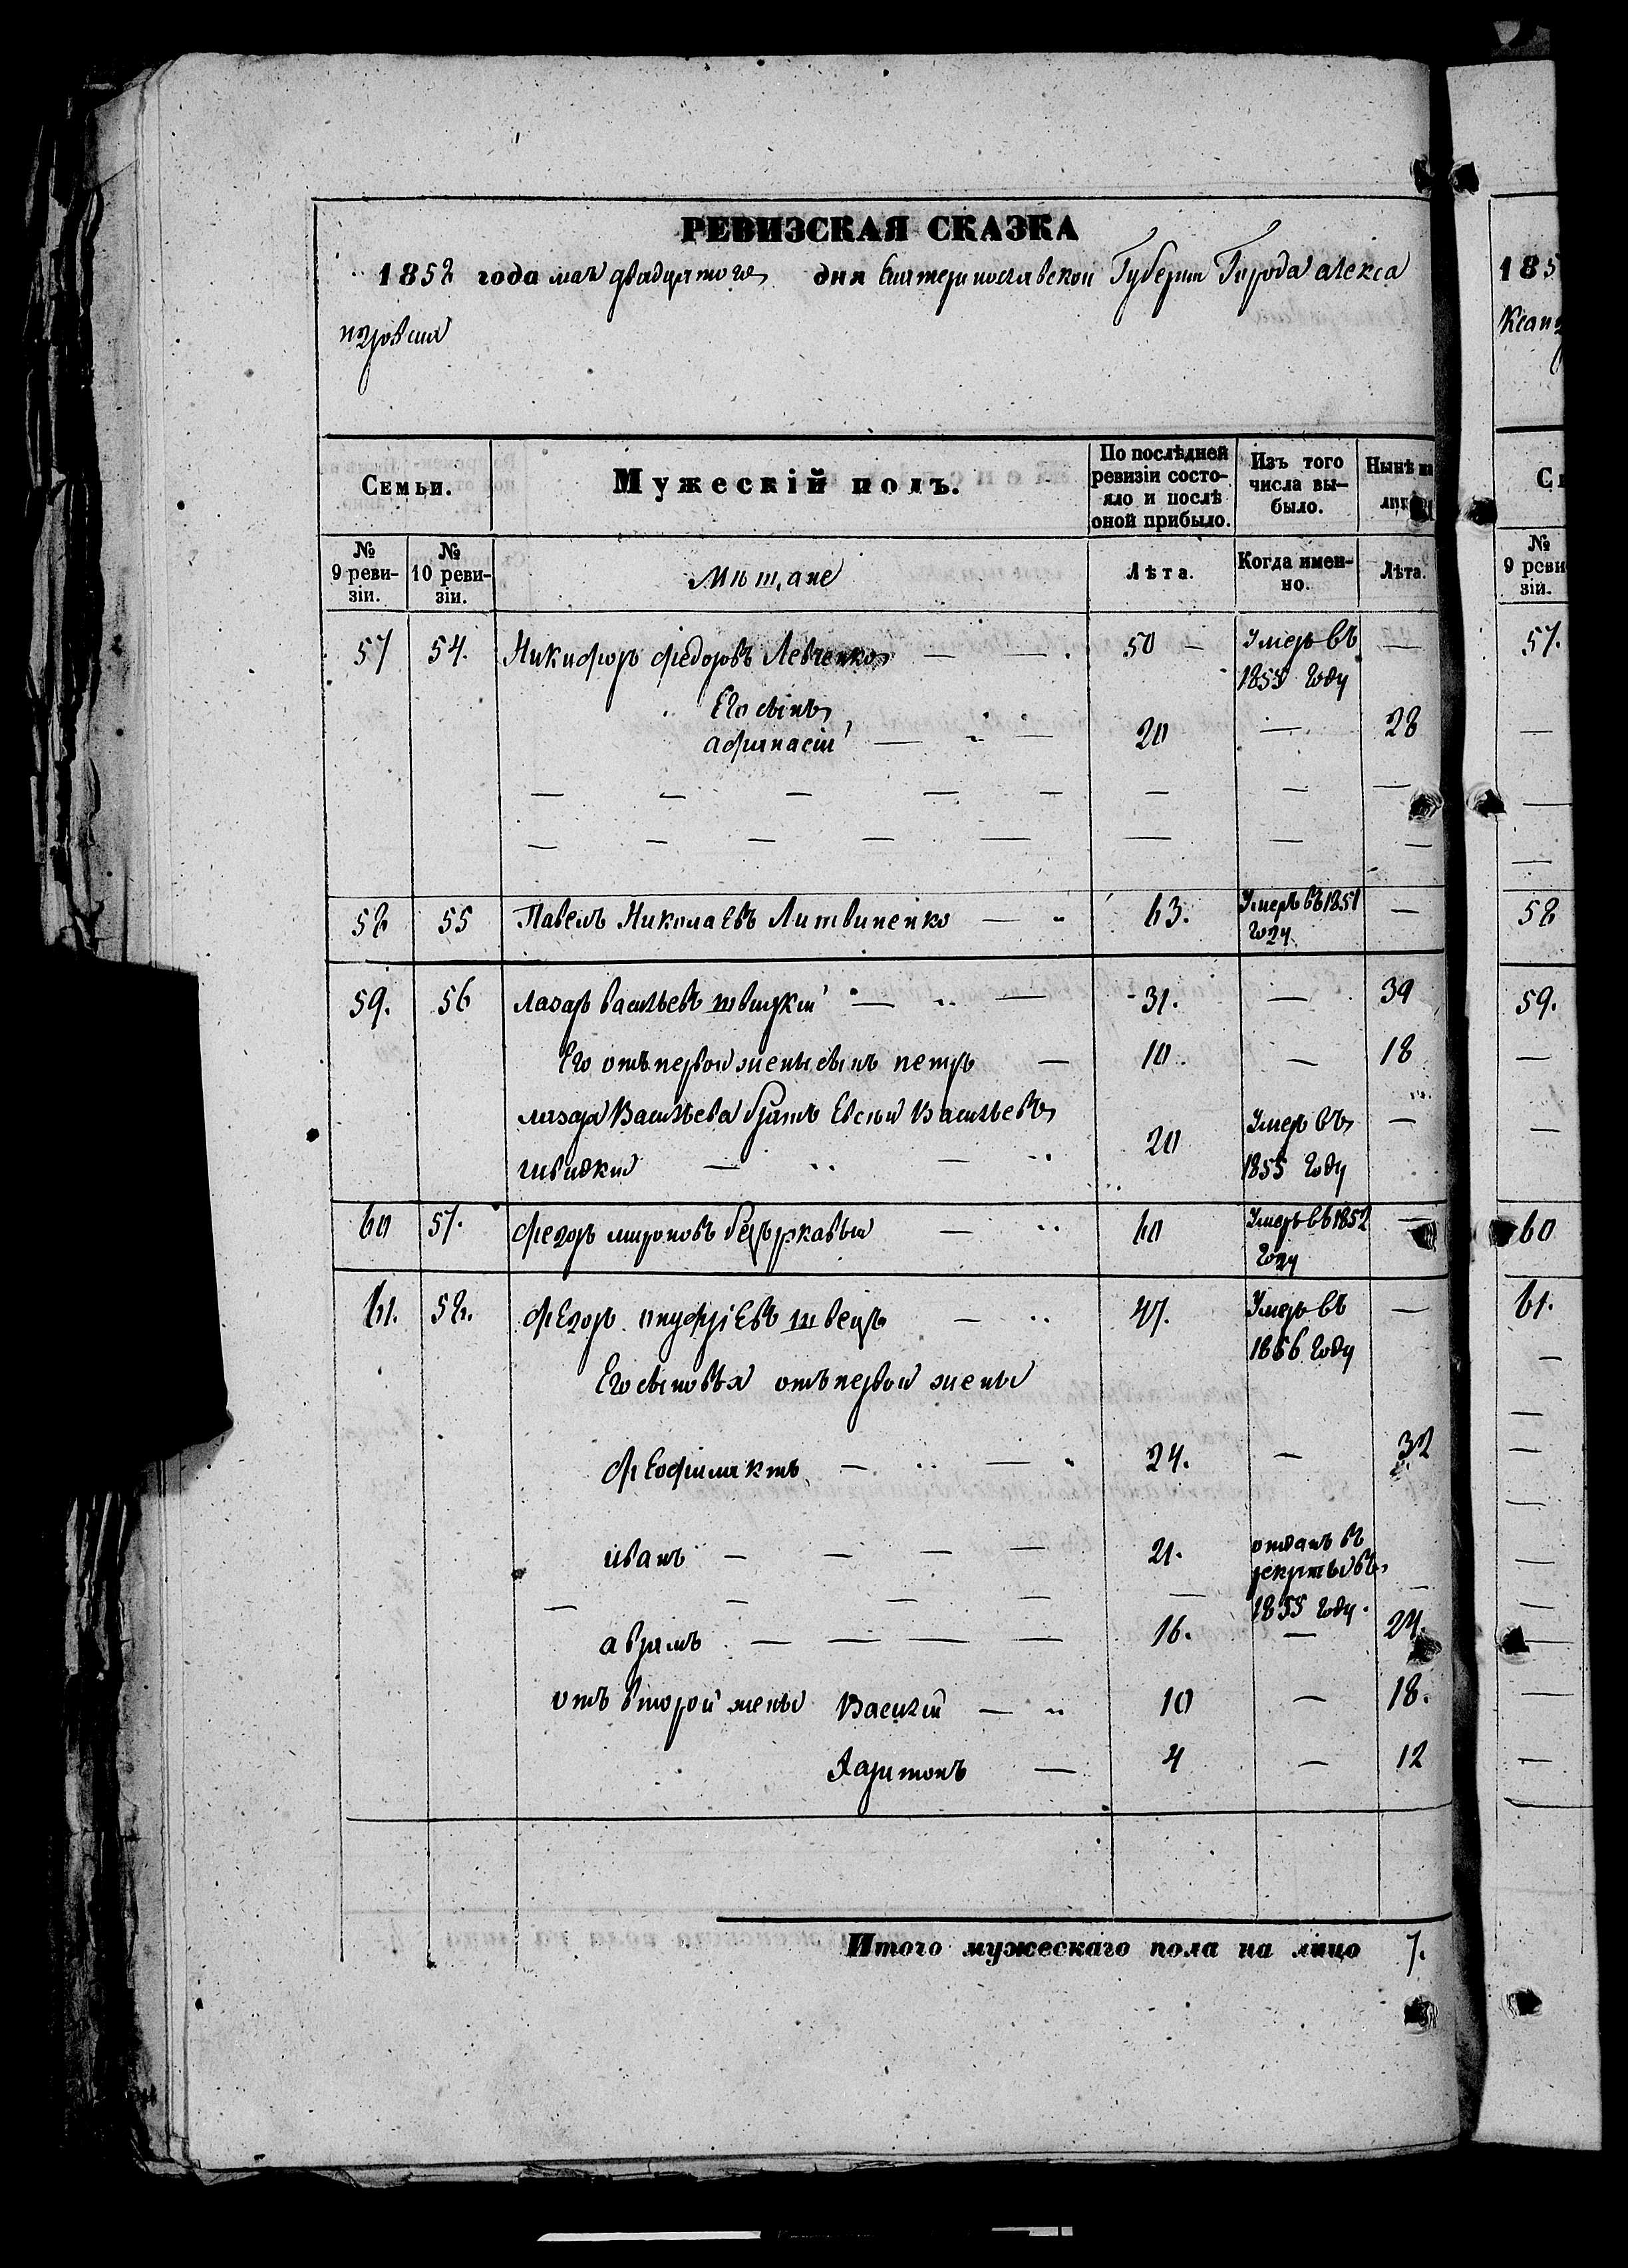 РЕВИЗСКАЯ СКАЗКА
1858 года мая двадцатого дня Екатеринославской Губернии Города алекса
ндровска
Семьи.
Мужескій полъ.
По послѣдней ревизіи состояло и послѣ оной прибыло.
Изъ того числа выбыло.
Нынѣ на лицо
№ 9 ревизіи.
№ 10 ревизіи.
Мѣщане
Лѣта.
Когда именно.
Лѣта.
57 54. Никифоръ федоровъ Левченко — — 50 — Умеръ въ 1855 году —
Его сынъ
афанасій — — 20 — 28
— — — — — — — —
— — — — — — — —
58 55 Павелъ Николаевъ Литвиненко — 63. Умеръ въ 1851 году —
59. 56 лазарь васильевъ швидкій — — 31. — 39
Его отъ первой жены сынъ петръ — 10. — 18
лазаря Васильева братъ Евсей Васильевъ
швидкій — — 20 Умеръ въ 1855 году —
60 57. федоръ мироновъ — 60 Умеръ въ 1852 году —
61. 58. федоръ онуфріевъ швецъ — 47. Умеръ въ 1856 году —
Его сыновья отъ первой жены
феофилактъ — — 24. — 32
иванъ — — — — 21. отданъ въ рекруты въ 1855 году. —
— — — — —
аврамъ — — — — 16. — 24.
отъ второй жены Василій — 10 — 18.
Харитонъ — 4 — 12
Итого мужескаго пола на лицо 7.
185
ксанд
№ 9 реви
зіи.
57.
58
59.
60
61.